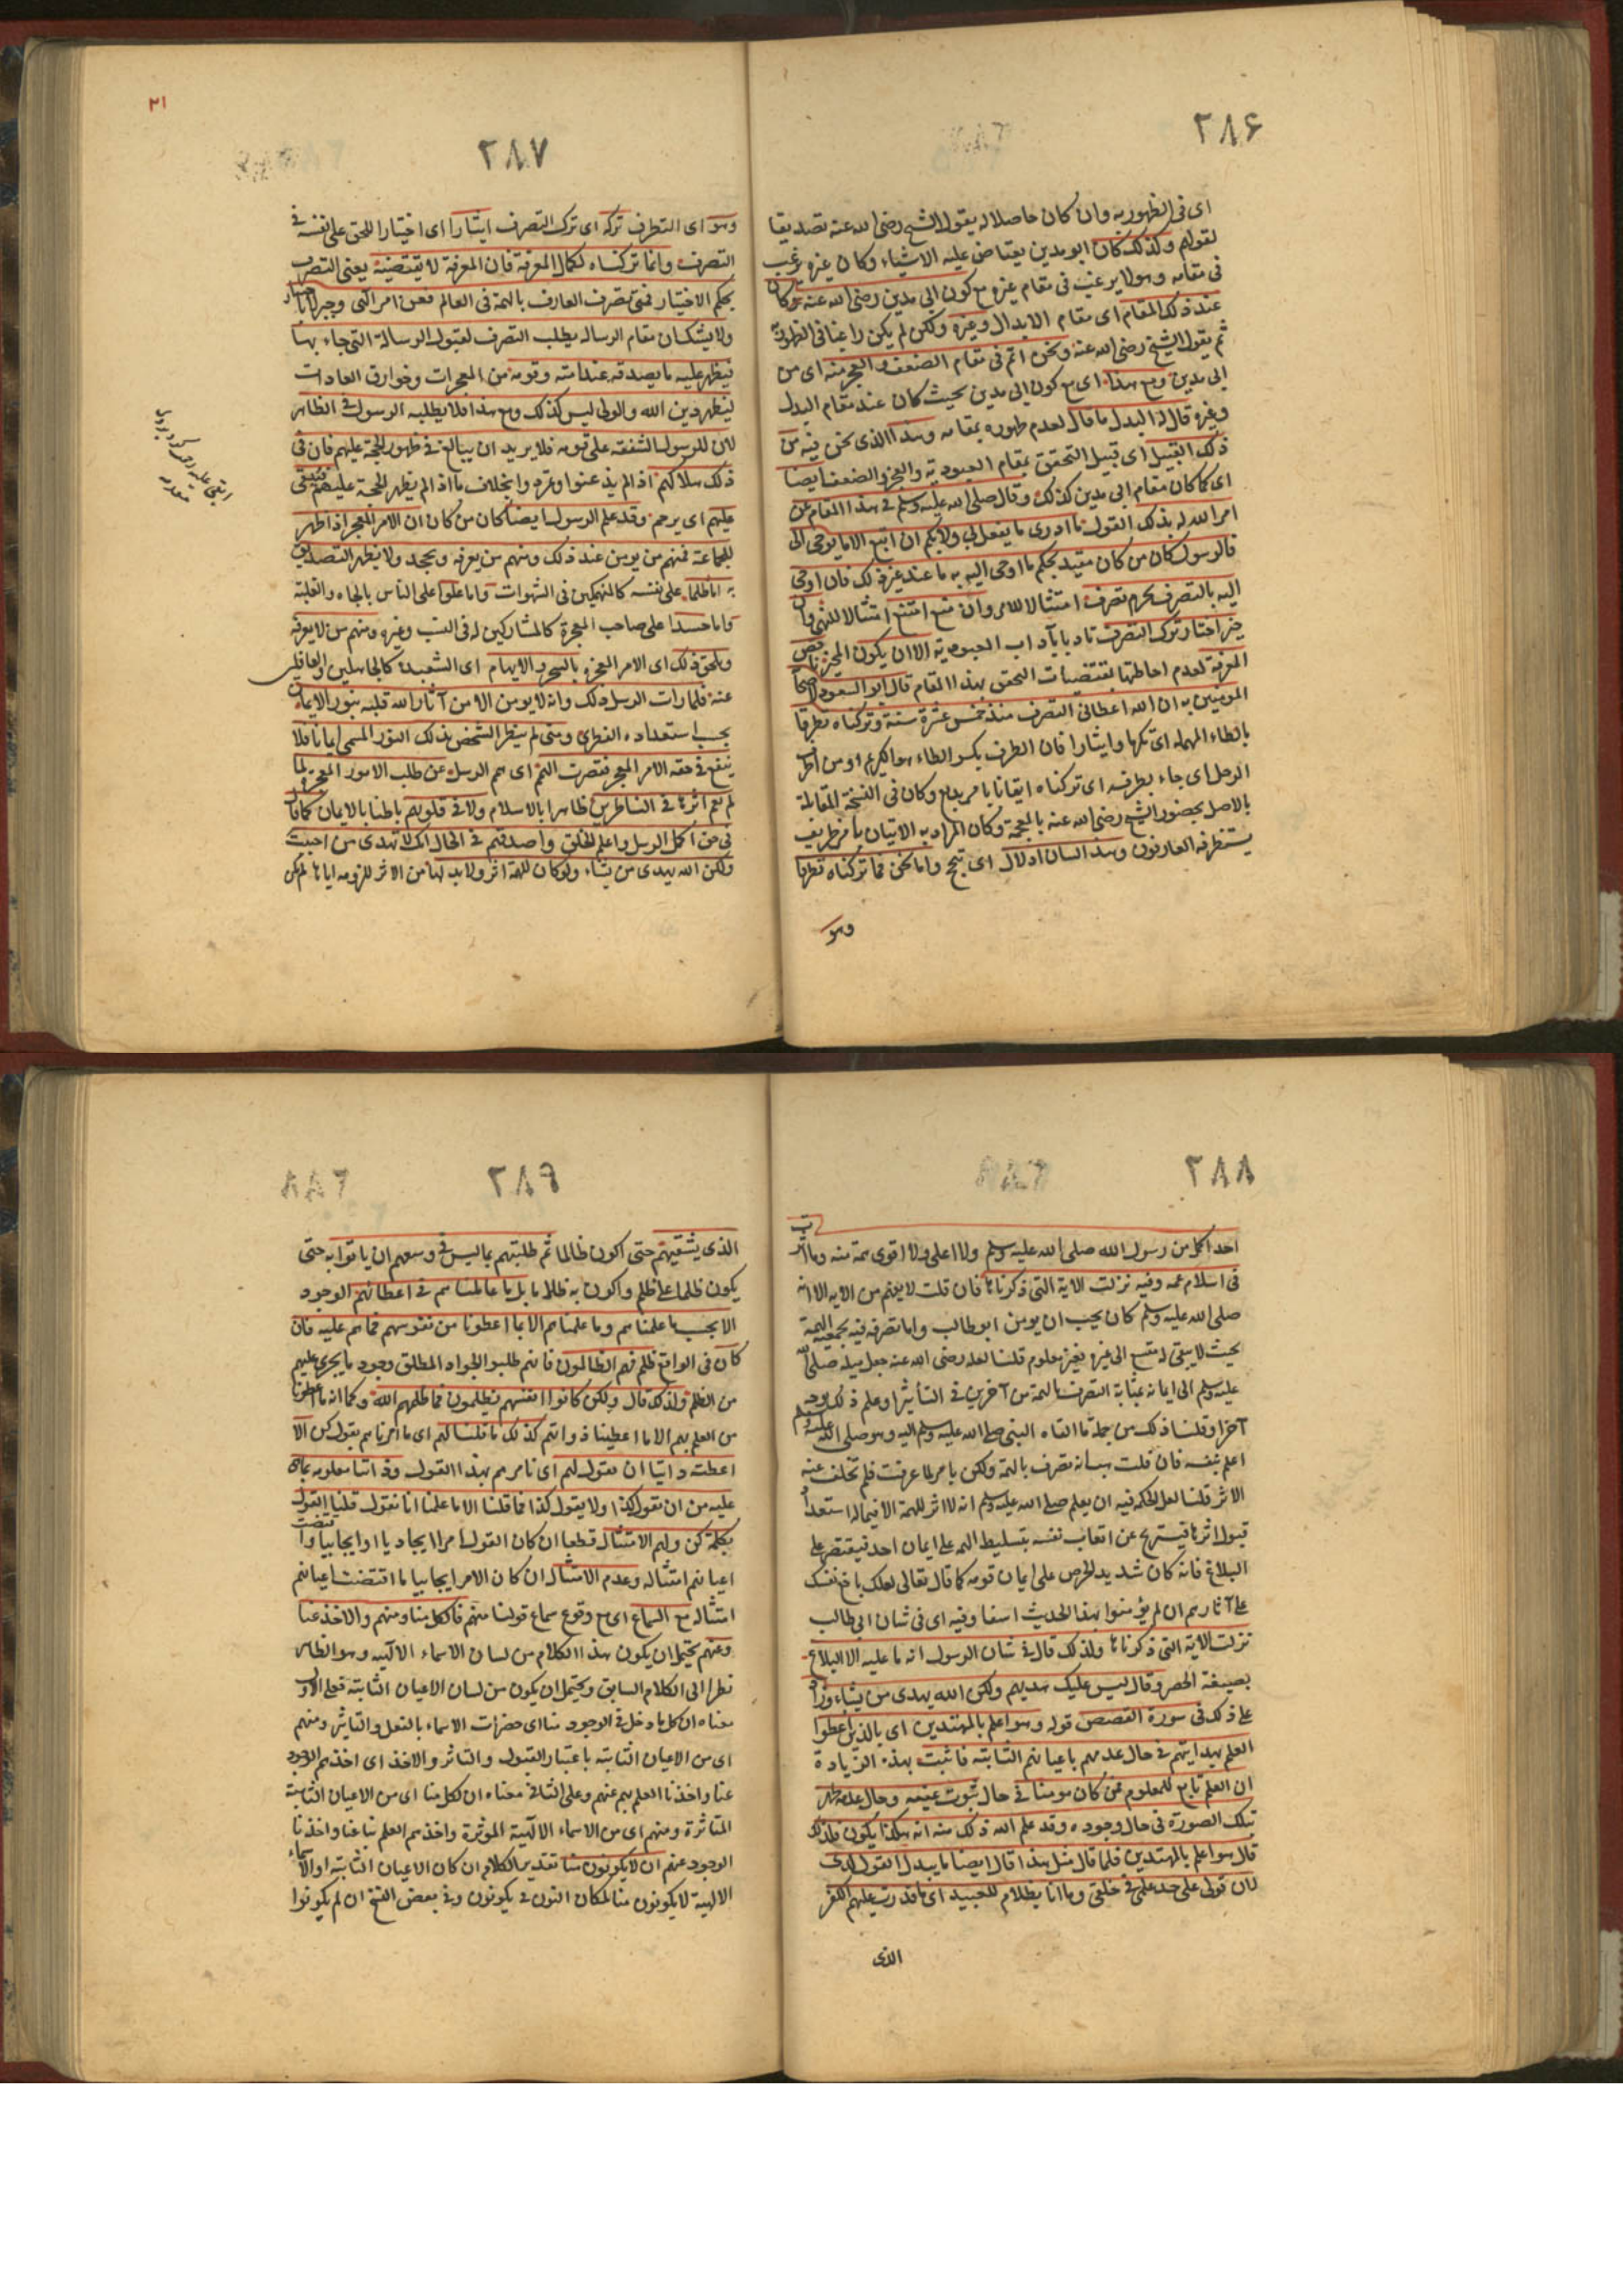 ٢٨۶
اى فى الظهور به وان كان حاصلا له يقول الشيخ رضى الله عنه تصديقا
لقولهم وكذلك كان ابو مدين يعتاض عليه الاشياء وكان غيره يرغب
فى مقامه وهو لا يرغب فى مقام غيره مع كون ابى مدين رضى الله عنه كان
عنده ذلك المقام اى مقام الابدال وغيره ولكن لم يكن راغبا فى الظهور به
ثم يقول الشيخ رضى الله عنه ونحن اتم فى مقام الضعف والعجز منه اى من
ابى مدين ومع هذا اى مع كون ابى مدين بحيث كان عنده مقام البدل
وغيره قال له البدل ما قال لعدم ظهوره بمقامه وهذا الذى نحن فيه من
ذلك القبيل اى قبيل التحقق بمقام العبودية والعجز والضعف ايضا
اى كما كان مقام ابى مدين كذلك وقال صلى الله عليه وسلم فى هذا المقام عن
امر الله له بذلك القول ما ادرى ما يفعل بى ولا بكم ان اتبع الا ما يوحى الى
فالرسول كان من كان مقيد بحكم ما اوحى اليه به ما عنده غير ذلك فان اوحى
اليه بالتصرف بجزم تصرف امتثالا للامر وان منع امتنع امتثالا للنهى وان
خير اختار ترك التصرف تادبا بآداب العبودية الا ان يكون المخير ناقص
المعرفة لعدم احاطتها بمقتضيات التحقق بهذا المقام قال ابو السعود لاصحابه
المومنين به ان الله اعطانى التصرف منذ خمس عشرة سنة وتركناه تطرفا
بالطاء المهملة اى تكرما وايثارا فان الطرف بكسر الطاء هو الكريم او من اطرف
الرجل اى جاء بطرفة اى تركناه ايقانا بامر بديع وكان فى النسخة المقابلة
بالاصل بحضور الشيخ رضى الله عنه بالمعجمة وكان المراد به الاتيان بامر ظريف
يستظرفه العارفون وهذا لسان ادلال اى تبجح واما نحن فما تركناه تظرفا
وهو
٢١
٢٨٧
وهو اى التظرف تركه اى ترك التصرف ايثارا اى اختيارا للحق على نفسه فى
التصرف وانما تركناه لكمال المعرفة فان المعرفة لا تقتضيه يعنى التصرف
بحكم الاختيار فمتى تصرف العارف بالهمة فى العالم فعن امر الهى وجبر لا باختيار
ولا يشك ان مقام الرسالة يطلب التصرف لقبول الرسالة التى جاء بها
فيظهر عليه ما يصدقه عند امته وقومه من المعجزات وخوارق العادات
ليظهر دين الله والولى ليس كذلك ومع هذا فلا يطلبه الرسول فى الظاهر
لان للرسول الشفقة على قومه فلا يريد ان يبالغ فى ظهور الحجة عليهم فان فى
ذلك هلاكهم اذا لم يذعنوا وغرم وابخلاف ما اذا لم يظهر الحجة عليهم فيبقى
عليهم اى يرحم وقد علم الرسول ايضا كان من كان ان الامر المعجز اذا ظهر
للجماعة فمنهم من يومن عند ذلك ومنهم من يعرفه ويجحد ولا يظهر التصديق
به اما ظلما على نفسه كالمنهمكين فى الشهوات واما علوا على الناس بالجاه والغلبة
واما حسدا على صاحب المعجزة كالمشاركين له فى النسب وغيره ومنهم من لا يعرفه
ويلحق ذلك اى الامر المعجزة بالسحر والايهام اى الشعبدة كالجاهلين والغافلين
عنه فلما رات الرسل ذلك وانه لا يومن الا من آثار الله قلبه بنور الايمان
بحسب استعداده الفطرى ومتى لم ينظر الشخص بذلك النور المسمى ايمانا فلا
ينفع فى حقه الامر المعجز فقصرت الهمم اى همم الرسل عن طلب الامور المعجزة لما
لم يعم اثرها فى الناظرين ظاهرا بالاسلام ولا فى قلوبهم باطنا بالايمان كما قال
فى حق اكمل الرسل واعلم الخلق واصدقهم فى الحال انك لا تهدى من احببت
ولكن الله يهدى من يشاء ولو كان للهمة اثر ولا بد لها من الاثر للزومه اياها لم يكن
٢٨٨
احد اكمل من رسول الله صلى الله عليه وسلم ولا اعلى ولا اقوى همة منه وما اثرت
فى اسلام عمه وفيه نزلت الاية التى ذكرناها فان قلت لا يفهم من الاية الا انه
صلى الله عليه وسلم كان يحب ان يومن ابو طالب واما تصرفه فيه بجمعية الهمة
بحيث لا يبقى له متسع الى غيره فغير معلوم قلنا لعله رضى الله عنه جعل ميله صلى الله
عليه وسلم الى ايمانه بمثابة التصرف بالهمة من آخرين فى التأثير او علم ذلك بوجه
آخر او قلنا ذلك من جملة ما القاه النبى صلى الله عليه وسلم اليه وهو صلى الله عليه وسلم
اعلم بنفسه فان قلت هب انه تصرف بالهمة ولكن بامر لما عرفت فلم تخلف عنه
الاثر قلنا لعل الحكمة فيه ان يعلم صلى الله عليه وسلم انه لا اثر للهمة الا فيما له استعداد
قبول اثرها فيستريح عن اتعاب نفسه بتسليط الهمة على ايمان احد فيقتصر على
البلاغ فانه كان شديد الحرص على ايمان قومه كما قال تعالى لعلك باخع نفسك
على آثارهم ان لم يؤمنوا بهذا الحديث اسفا وفيه اى فى شان ابى طالب
نزلت الاية التى ذكرناها ولذلك قال فى شان الرسول انه ما عليه الا البلاغ
بصيغة الحصر وقال ليس عليك هديهم ولكن الله يهدى من يشاء وزاد
على ذلك فى سورة القصص قوله وهو اعلم بالمهتدين اى بالذين اعطوا
العلم بهدايتهم فى حال عدمهم باعيانهم الثابتة فاثبت بهذه الزيادة
ان العلم تابع للمعلوم فمن كان مومنا فى حال ثبوت عينه وحال عدمه ظهر
بتلك الصورة فى حال وجوده وقد علم الله ذلك منه انه هكذا يكون فلذلك
قال هو اعلم بالمهتدين فلما قال مثل هذا قال ايضا ما يبدل القول لدى
لان قولى على حد علمى فى خلقى وما انا بظلام للعبيد اى ما قدرت عليهم الكفر
الذى
٢٨٩
الذى يشقيهم حتى اكون ظالما ثم طلبتهم بما ليس فى وسعهم ان ياتوا به حتى
يكون ظلما على ظلم واكون به ظلاما بل ما عاملناهم فى اعطائهم الوجود
الا بحسب ما علمناهم وما علمناهم الا بما اعطونا من نفوسهم مما هم عليه فان
كان فى الواقع ظلم فهم الظالمون فانهم طلبوا الجواد المطلق وجود ما يجرى عليهم
من الظلم ولذلك قال ولكن كانوا انفسهم يظلمون فما ظلمهم الله وكما انه ما اعطونا
من العلم بهم الا ما اعطينا ذواتهم كذلك ما قلنا لهم اى ما امرناهم بقول كن الا
اعطته ذاتنا ان نقول لهم اى نامرهم بهذا القول وذاتنا معلومة بما هى
عليه من ان نقول كذا ولا يقول كذا فما قلنا الا ما علمنا انا نقول فلنا القول
بكلمة كن ولهم الامتثال قطعا ان كان القول امرا ايجاديا او ايجابيا واقتضت
اعيانهم امتثاله وعدم الامتثال ان كان الامر ايجابيا ما اقتضت اعيانهم
امتثاله مع السماع اى مع وقوع سماع قولنا منهم فالكل منا ومنهم والاخذ عنا
وعنهم يحتمل ان يكون هذا الكلام من لسان الاسماء الالهية وهو الظاهر
نظرا الى الكلام السابق ويحتمل ان يكون من لسان الاعيان الثابتة فعلى الاول
معناه ان كل ما دخل فى الوجود منا اى حضرات الاسماء بالفعل والتاثير ومنهم
اى من الاعيان الثابتة باعتبار القبول والتاثر والاخذ اى اخذهم الوجود
عنا واخذنا العلم بهم عنهم وعلى الثانى معناه ان لكل منا اى من الاعيان الثابتة
المتاثرة ومنهم اى من الاسماء الالهية الموثرة واخذهم العلم بنا عنا واخذنا
الوجود عنهم ان لا يكونون منا تقدير الكلام ان كان الاعيان الثابتة او الاسماء
الالهية لا يكونون منا لمكان النون فى يكونون وفى بعض النسخ ان لم يكونوا